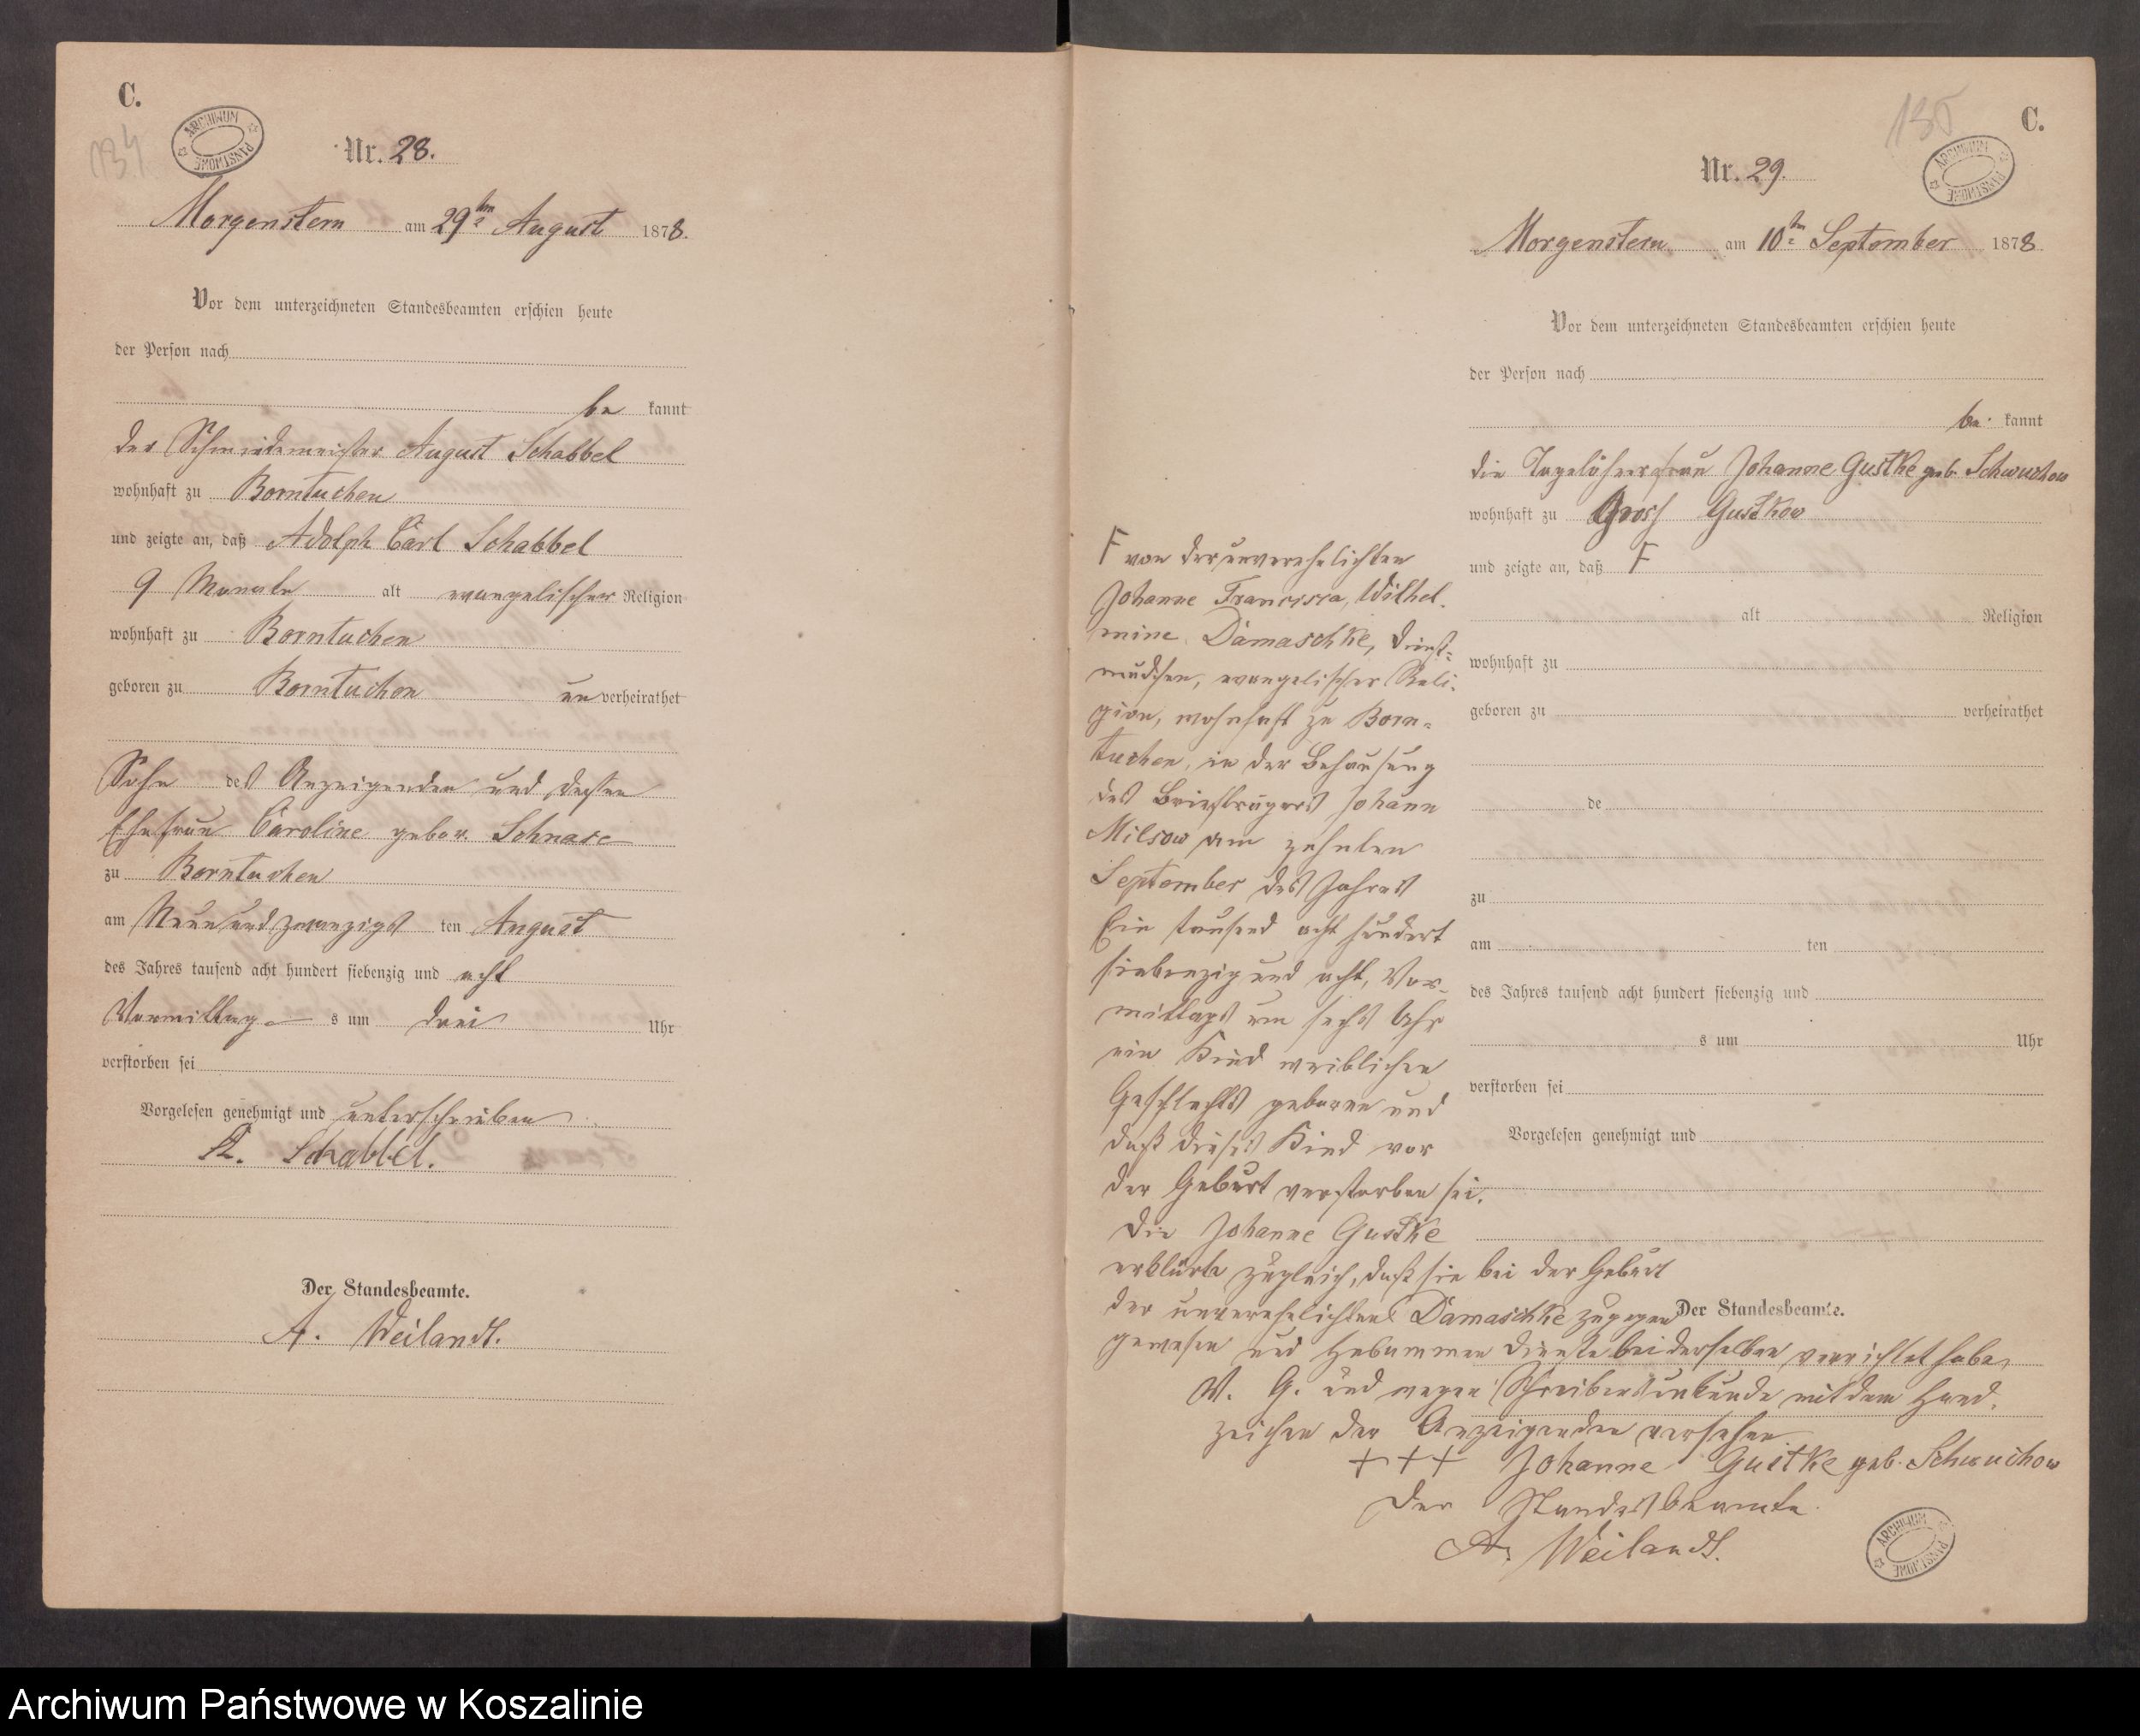 C.
134
ARCHIWUM PAŃSTWOWE
Nr. 28.
Morgenstern am 29ten August 1878.
Vor dem unterzeichneten Standesbeamten erschien heute
der Person nach
be kannt
der Schmiedemeister August Schabbel
wohnhaft zu Borntuchen
und zeigte an, daß Adolph Carl Schabbel
9 Monate alt evangelischer Religion
wohnhaft zu Borntuchen
geboren zu Borntuchen un verheirathet
Sohn des Anzeigenden und dessen
Ehefrau Caroline gebor. Schnase
zu Borntuchen
am Neunundzwanzigs ten August
des Jahres tausend acht hundert siebenzig und acht
Vormittag s um drei Uhr
verstorben sei
Vorgelesen genehmigt und unterschrieben
A. Schabbel.
Der Standesbeamte.
A. Weilandt.
135
C.
ARCHIWUM PAŃSTWOWE
Nr. 29.
Morgenstern am 10ten September 1878
Vor dem unterzeichneten Standesbeamten erschien heute
der Person nach
be kannt
die Tagelöhnerfrau Johanne Gustke geb. Schwuchow
wohnhaft zu Gross Gustkow
und zeigte an, daß F
alt Religion
wohnhaft zu
geboren zu verheirathet
de
zu
am ten
des Jahres tausend acht hundert siebenzig und
s um Uhr
verstorben sei
Vorgelesen genehmigt und
Der Standesbeamte.
F von der unverehelichten
Johanne Francisca, Wilhel-
mine Damaschke, Dienst-
mädchen, evangelischer Reli-
gion, wohnhaft zu Born-
tuchen, in der Behausung
des Briefträgers Johann
Milsow am zehnten
September des Jahres
Ein tausend acht hundert
siebenzig und acht, Vor-
mittags um sechs Uhr
ein Kind weiblichen
Geschlechts geboren und
daß dieses Kind vor
der Geburt verstorben sei.
Die Johanne Gustke
erklärte zugleich, daß sie bei der Geburt
der unverehelichten Damaschke zugegen
gewesen und Hebammen Dienste bei derselben verrichtet habe,
V. G. und wegen Schreibensunkunde mit dem Hand-
zeichen der Anzeigenden versehen
+++ Johanne Gustke geb. Schwuchow
Der Standesbeamte.
A. Weilandt.
ARCHIWUM PAŃSTWOWE
Archiwum Państwowe w Koszalinie